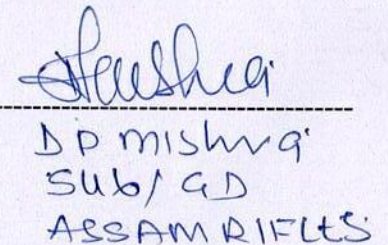 DP Mishra
SUb/GD
ASSAM RIFLES